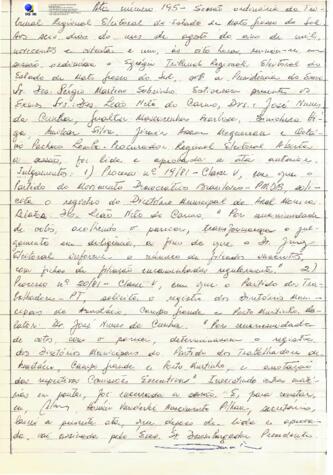 Ata número 195 - Sessão ordinária do Tri-
bunal Regional Eleitoral do Estado de Mato Grosso do Sul.
Aos seis dias do mês de agosto do ano de mil,
novecentos e oitenta e um, às oito horas, reuniu-se em
sessão ordinária o Egrégio Tribunal Regional Eleitoral do
Estado de Mato Grosso do Sul, sob a Presidência do Exmo.
Sr. Des. Sérgio Martins Sobrinho. Estiveram presentes os
Exmos. Srs. Des. Leão Neto do Carmo, Drs. José Nunes
da Cunha,
Silva,
Pacheco Procurador Regional Eleitoral. Aberta
a sessão, foi lida e aprovada a ata anterior.
Julgamentos: 1) Processo nº 19/81 - Classe V, em que o
Partido do Movimento Democrático Brasileiro - PMDB, soli-
cita o registro do Diretório Municipal de
Relator: Des. Leão Neto do Carmo. "Por unanimidade
de votos, o parecer, transformaram o jul-
gamento em diligência, a fim de que o Dr. Juiz
Eleitoral informe o número de filiados
com fichas de filiação encaminhadas regularmente." 2)
Processo nº 20/81 - Classe V, em que o Partido dos Tra-
balhadores - PT, solicita o registro dos Diretórios Muni-
cipais de Anastácio, Campo Grande e Porto Murtinho. Re-
lator: Dr. José Nunes da Cunha. "Por unanimidade
de votos com o parecer, determinaram o registro
dos Diretórios Municipais do Partido dos Trabalhadores de
Anastácio, Campo Grande e Porto Murtinho, e anotação
das respectivas Comissões Executivas." Inexistindo outras maté-
rias em pauta, foi encerrada a sessão. E, para constar,
eu, secretário,
lavrei a presente ata, que depois de lida e aprova-
da, vai assinada pelo Exmo. Sr. Desembargador Presidente.